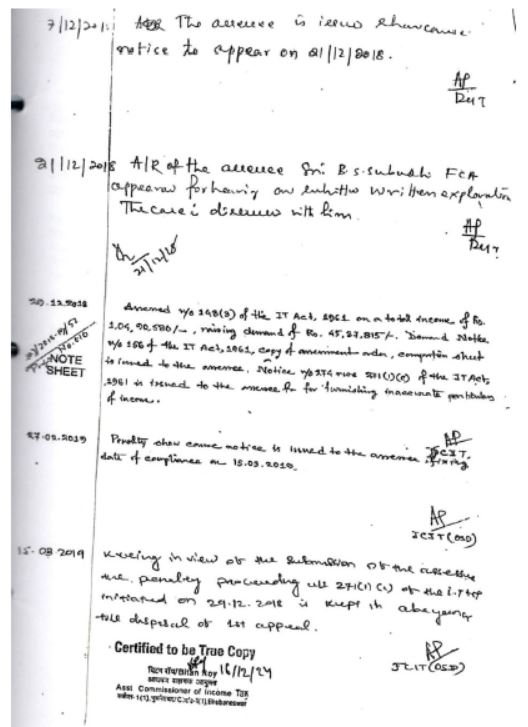 7/12/2018 The assessee is issue showcause
notice to appear on 21/12/2018.
AP
DCIT
21/12/2018 A/R of the assessee Sri B.S. Subudhi FCA
appeared for hearing and submitted written explanation
The case is discussed with him.
AP
DCIT
21/12/18
29.12.2018 Assessed u/s 143(3) of the IT Act, 1961 on a total income of Rs.
1,04,90,580/-, raising demand of Rs. 45,27,815/-. Demand Notice
u/s 156 of the IT Act, 1961, copy of assessment order, computation sheet
is issued to the assessee. Notice u/s 274 r.w.s 271(1)(c) of the IT Act,
1961 is issued to the assessee for furnishing inaccurate particulars
of income.
NOTE
SHEET
AP
27.02.2019 Penalty show cause notice is issued to the assessee fixing
date of compliance on 15.03.2019.
AP
JCIT (OSD)
15-03-2019 Keeing in view of the submission of the assessee
the penalty proceeding u/s 271(1)(c) of the I.T Act
initiated on 29.12.2018 is kept in abeyance
till disposal of 1st appeal.
AP
JCIT (OSD)
Certified to be True Copy
Roy 16/12/24
Asst Commissioner of Income Tax
Bhubaneswar